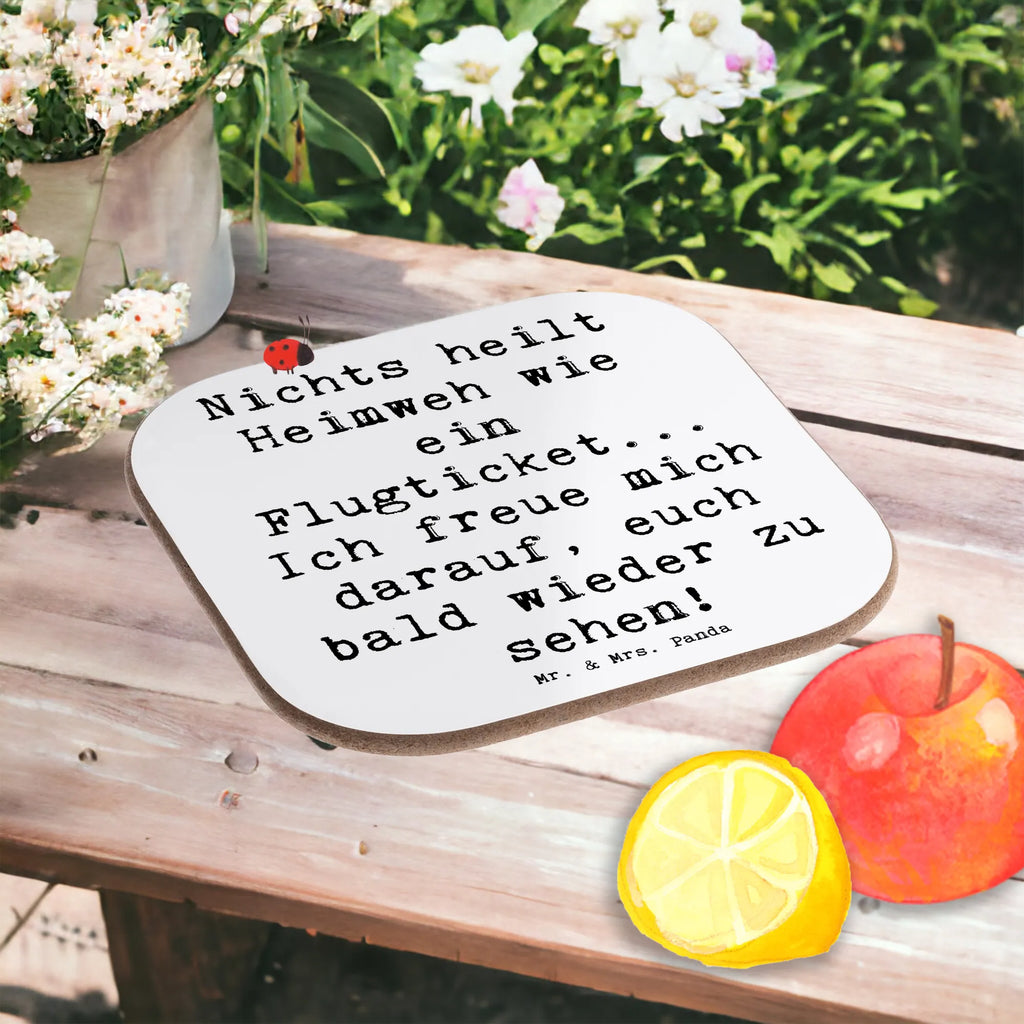 Nichts heilt
Heimweh wie
ein
Flugticket...
Ich freue mich
darauf, euch
bald wieder zu
sehen!
Mr. & Mrs. Panda